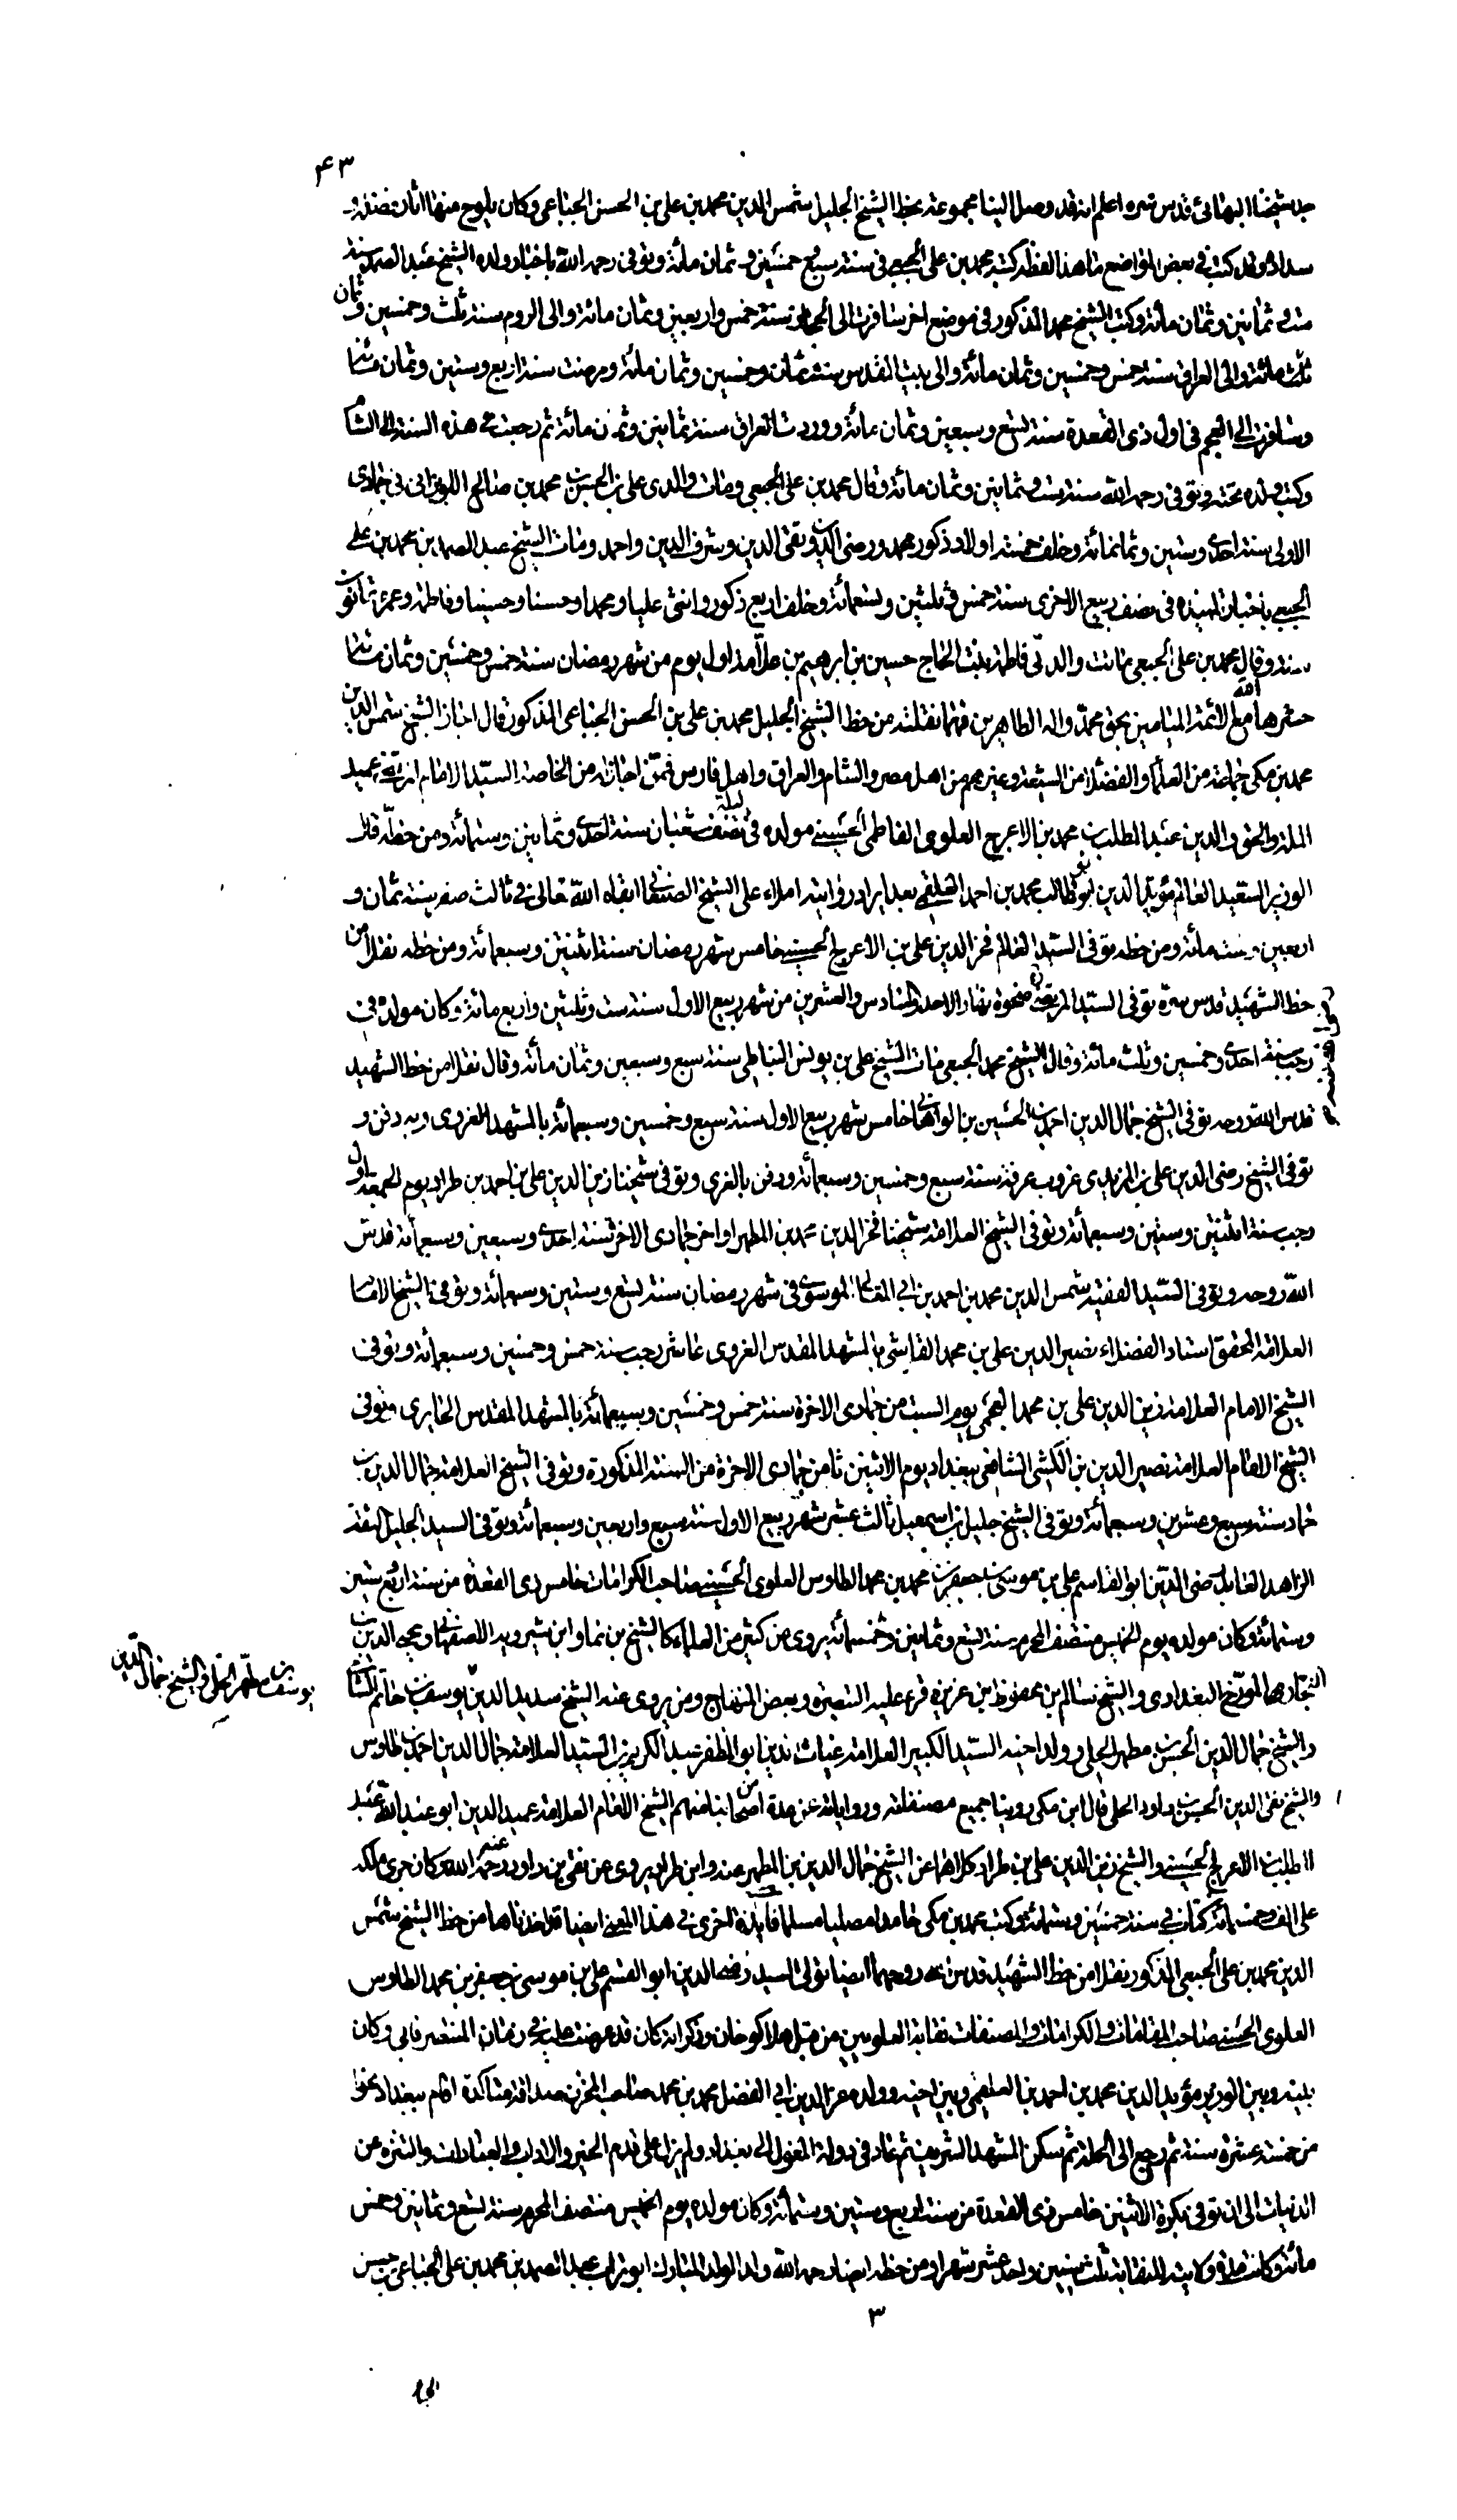 ۴۳
جد شيخنا البهائى قدس سره اعلم انه قد وصل الينا مجموعة بخط الشيخ الجليل شمس الدين محمد بن على بن الحسن الجباعى وكان يلوح منها اثار فضله و
سداده وقد كتب فى بعض المواضع ما هذا لفظه كتبه محمد بن على الجبعى فى سنة سبع وخمسين وثمان مائة وتوفى رحمه الله باخبار ولده الشيخ عبد الصمد سنة
ست وثمانين وثمان مائة وكتب الشيخ محمد المذكور فى موضع اخر سافرت الى الحجاز سنة خمس واربعين وثمان مائة والى الروم سنة ثلث وخمسين وثمان
مائة والى العراق سنة خمس وخمسين وثمان مائة والى بيت المقدس سنة ثمان وخمسين وثمان مائة ومرضت سنة اربع وستين وثمان مائة
وسافرت الى العجم فى اول ذى القعدة سنة تسع وسبعين وثمان مائة ووردت العراق سنة ثمانين وثمان مائة ثم رجعت فى هذه السنة الى الشام
وكتب ولده تحته وتوفى رحمه الله سنة ست وثمانين وثمان مائة وقال محمد بن على الجبعى ومات والدى على بن الحسن بن محمد بن صالح اللويزانى فى جمادى
الاولى سنة احدى وستين وثمانمائة وخلف خمسة اولاد ذكور محمد ورضى الدين وتقى الدين وشرف الدين واحمد ومات الشيخ عبد الصمد بن محمد بن على
الجبعى باخبار فى نصف ربيع الاخرى سنة خمس وثلثين وتسعمائة وخلف اربع ذكور وانثى عليا ومحمدا وحسنا وحسينا وفاطمة وعمره ثمانون
سنة وقال محمد بن على الجبعى ماتت والدتى فاطمة بنت الحاج حسين بن ابرهيم بن علامة اول يوم من شهر رمضان سنة خمس وخمسين وثمان مائة
حشرها الله مع الائمة الميامين بحق محمد واله الطاهرين فمما نقلته من خط الشيخ الجليل محمد بن على بن الحسن الجباعى المذكور قال اجاز الشيخ شمس الدين
محمد بن مكى جماعة من العلماء والفضلاء من الشيعة وغيرهم من اهل مصر والشام والعراق واهل فارس فممن اجازه من الخاصة السيد الامام المرتضى عميد
الملة والحق والدين عبد المطلب بن محمد بن الاعرج العلوى الفاطمى الحسينى مولده فى ليلة نصف شعبان سنة احدى وثمانين وستمائة ومن خطه قال
الوزير السعيد العالم مؤيد الدين ابو طالب محمد بن احمد العلقمى بعد ايراد روايته املاء على الشيخ الصنعانى ابقاه الله تعالى فى ثالث صفر سنة ثمان و
اربعين وستمائة ومن خطه توفى السيد العالم فخر الدين على بن الاعرج الحسينى خامس شهر رمضان سنة اثنتين وسبعمائة ومن خطه نقلا من
خط الشهيد قدس سره توفى السيد المرتضى ضحوة نهار الاحد السادس والعشرين من شهر ربيع الاول سنة ست وثلثين واربع مائة وكان مولده فى
رجب سنة احدى وخمسين وثلث مائة وقال الشيخ محمد الجبعى مات الشيخ على بن يونس النباطى سنة سبع وسبعين وثمان مائة وقال نقلا من خط الشهيد
قدس الله روحه توفى الشيخ جمال الدين احمد بن الحسين بن خامس شهر ربيع الاول سنة سبع وخمسين وسبعمائة بالمشهد الغروى وبه دفن و
توفى الشيخ رضى الدين على بن المزيدى غروب عرفة سنة سبع وخمسين وسبعمائة ودفن بالغرى وتوفى شيخنا زين الدين على بن احمد بن طراد يوم الجمعة اول
رجب سنة اثنتين وستين وسبعمائة وتوفى الشيخ العلامة شيخنا فخر الدين محمد بن المطهر اواخر جمادى الاخر سنة احدى وسبعين وسبعمائة قدس
الله روحه وتوفى السيد الفقيه شمس الدين محمد بن احمد بن ابى المعالى الموسوى فى شهر رمضان سنة تسع وستين وسبعمائة وتوفى الشيخ الامام
العلامة المحقق استاد الفضلاء نصير الدين على بن محمد القاشى بالمشهد المقدس الغروى عاشر رجب سنة خمس وخمسين وسبعمائة وتوفى
الشيخ الامام العلامة زين الدين على بن محمد العجمى يوم السبت من جمادى الاخرة سنة خمس وخمسين وسبعمائة بالمشهد المقدس الحايرى وتوفى
الشيخ الامام العلامة نصير الدين بن الكشى الشافعى ببغداد يوم الاثنين ثامن جمادى الاخرة من السنة المذكورة وتوفى الشيخ العلامة جمال الدين بن
حماد سنة سبع وعشرين وسبعمائة وتوفى الشيخ جليل بن اسمعيل ثالث عشر شهر ربيع الاول سنة سبع واربعين وسبعمائة وتوفى السيد الجليل الثقة
الزاهد العابد رضى الدين ابو القاسم على بن موسى بن جعفر بن محمد بن محمد الطاوس العلوى الحسينى صاحب الكرامات خامس ذى القعدة من سنة اربع وستين
وستمائة وكان مولده يوم الخميس منتصف المحرم سنة تسع وثمانين وخمسمائة يروى عن كثير من العلماء كالشيخ بن نما وابن شيرويه الاصفهانى ومحب الدين بن
النجار المورخ البغدادى والشيخ سالم بن محفوظ بن عزيزة قرء عليه التبصرة وبعض المنهاج ومن يروى عنه الشيخ سديد الدين يوسف بن حاتم الشامى
يوسف بن مطهر الحلى والشيخ جمال الدين
والشيخ جمال الدين الحسن بن مطهر الحلى وولد اخيه السيد الكبير العلامة غياث الدين ابو المظفر عبد الكريم بن السيد العلامة جمال الدين احمد بن طاوس
والشيخ تقى الدين الحسن بن داود الحلى قال ابن مكى روينا جميع مصنفاته ورواياته عن عدة من اصحابنا منهم الشيخ الامام العلامة عميد الدين ابو عبد الله عبد
المطلب بن الاعرج الحسينى والشيخ زين الدين على بن طراد كلاهما عن الشيخ جمال الدين بن المطهر عنه وابن طراد يروى عن تقى بن داود عنه رحمه الله وكان جرى ملكه
على الف وخمسمائة كتاب فى سنة خمسين وستمائة وكتب محمد بن مكى حامدا مصليا مسلما فايدة اخرى فى هذا المعنى ايضا قد اخذناها من خط الشيخ شمس
الدين محمد بن على الجبعى المذكور نقلا من خط الشهيد قدس الله روحهما ايضا تولى السيد رضى الدين ابو القسم على بن موسى بن جعفر بن محمد الطاوس
العلوى الحسنى صاحب المقامات والكرامات والمصنفات نقابة العلويين من قبل هلاكو خان وذكر انه كان قد عرضت عليه فى زمان المنتصر فابى وكان
بينه وبين الوزير مؤيد الدين محمد بن احمد بن العلقمى وبين اخيه وولده عز الدين ابى الفضل محمد بن محمد صاحب المخزن صداقة متاكدة اقام ببغداد نحوا
من خمسة عشرة سنة ثم رجع الى الحلة ثم سكن المشهد الشريف ثم عاد فى دولة المغول الى بغداد ولم يزل على قدم الخير والاداب والعبادات والتنزه عن
الدنيات الى ان توفى بكرة الاثنين خامس ذى القعدة من سنة اربع وستين وستمائة وكان مولده يوم الخميس منتصف المحرم سنة تسع وثمانين وخمس
مائة وكانت مدة ولايته للنقابة ثلث سنين واحد عشر شهرا ومن خطه ايضا رحمه الله ولد الولد المبارك ابو تراب عبد الصمد بن محمد بن على الجباعى بن حسن
۳